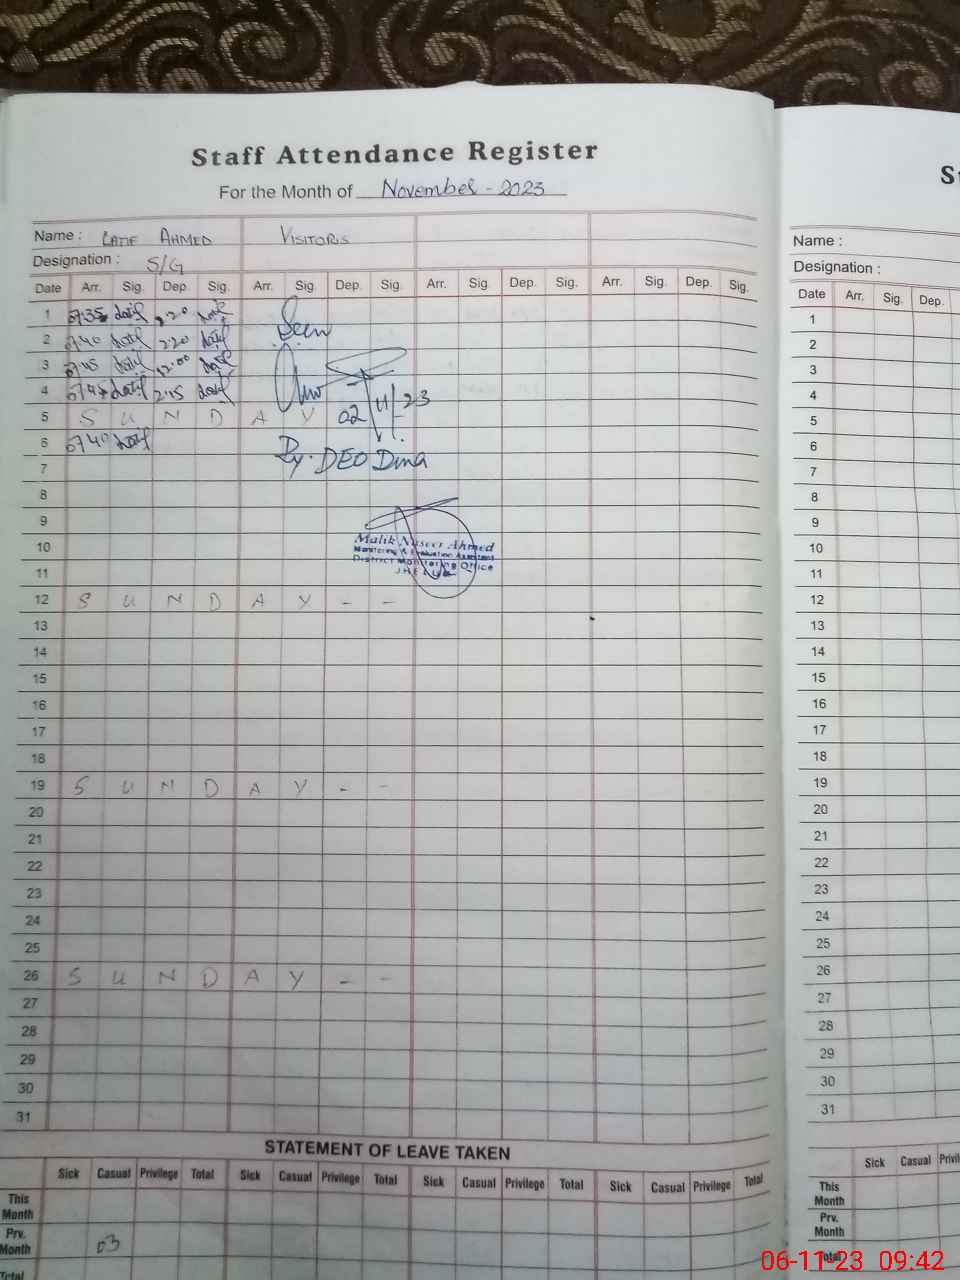 Staff Attendance Register
For the Month of November - 2023
Name : LATIF AHMED VISITORS
Designation : S/G
Date Arr. Sig. Dep. Sig. Arr. Sig. Dep. Sig. Arr. Sig. Dep. Sig. Arr. Sig. Dep. Sig.
1 07:35 Latif 2.20 Latif Seen
2 0740 Latif 2.20 Latif
3 07:45 Latif 12:00 Latif
4 0745 Latif 2.15 Latif
5 S U N D A Y 02/11/23
6 0740 Latif Dy. DEO Dina
7
8
9
10 Malik Naseer Ahmed
Monitoring & Evaluation Assistant
District Monitoring Office
11 JHELUM
12 S U N D A Y - -
13
14
15
16
17
18
19 S U N D A Y - -
20
21
22
23
24
25
26 S U N D A Y - -
27
28
29
30
31
STATEMENT OF LEAVE TAKEN
Sick Casual Privilege Total Sick Casual Privilege Total Sick Casual Privilege Total Sick Casual Privilege Total
This Month
Prv. Month 03
Total
St
Name :
Designation :
Date Arr. Sig. Dep.
1
2
3
4
5
6
7
8
9
10
11
12
13
14
15
16
17
18
19
20
21
22
23
24
25
26
27
28
29
30
31
Sick Casual Privil
This Month
Prv. Month
Total
06-11-23 09:42